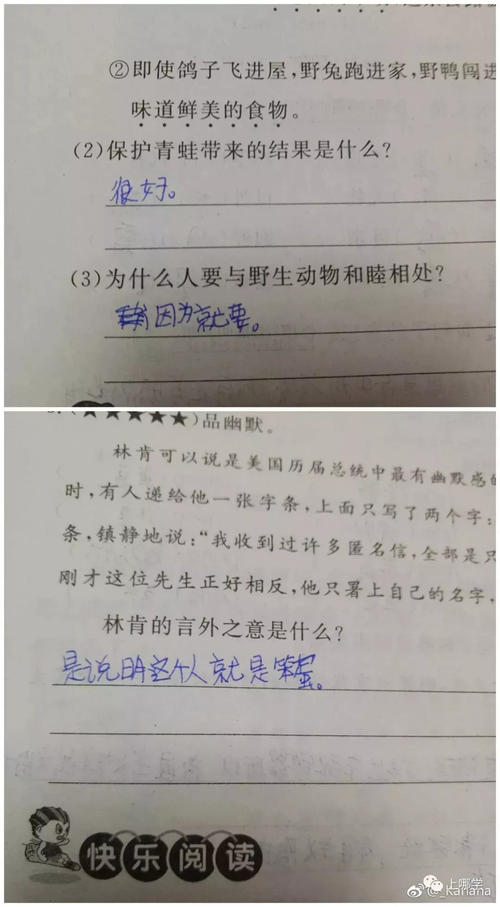 ②即使鸽子飞进屋，野兔跑进家，野鸭闯进
味道鲜美的食物。
(2)保护青蛙带来的结果是什么？
很好。
(3)为什么人要与野生动物和睦相处？
因为就要。
(★★★★★)品幽默。
林肯可以说是美国历届总统中最有幽默感的
时，有人递给他一张字条，上面只写了两个字：
条，镇静地说：“我收到过许多匿名信，全部是只
刚才这位先生正好相反，他只署上自己的名字，
林肯的言外之意是什么？
是说明这个人就是笨蛋。
快乐阅读
上哪学
@_kanana